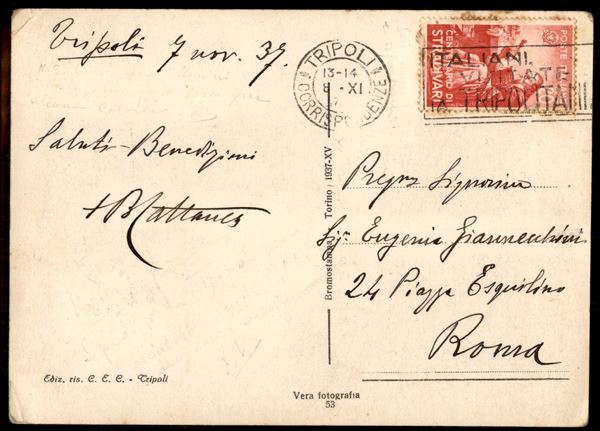 Tripoli 7 nov. 37.
Saluti - Benedizioni
+ B Cattaneo
Ediz. ris. C. E. C. - Tripoli
Bromostampa Torino 1937-XV
Vera fotografia
53
TRIPOLI
13-14
8 - XI
CORRISPONDENZE
POSTE
CENTENARIO DI
STRADIVARI
ITALIANI,
VISITATE
LA TRIPOLITANIA
Signorina
Sig. Eugenia Giannecchini
24 Piazza Esquilino
Roma